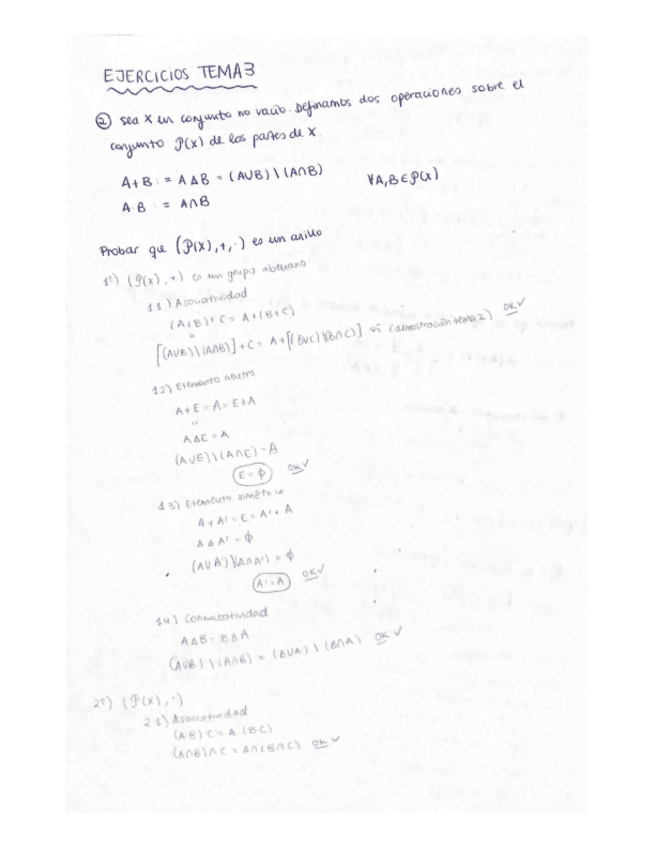 EJERCICIOS TEMA 3
② Sea X un conjunto no vacío. Definamos dos operaciones sobre el
conjunto P(X) de las partes de X.
A+B := A Δ B = (A∪B) \ (A∩B)
∀A,B∈P(X)
A·B := A∩B
Probar que (P(X),+,·) es un anillo
1º) (P(X),+) es un grupo abeliano
1.1) Asociatividad
(A+B)+C = A+(B+C)
"
[(A∪B)\(A∩B)]+C = A+[(B∪C)\(B∩C)] sí (demostración tema 2) OK ✓
1.2) Elemento neutro
A+E=A=E+A
"
AΔE=A
(A∪E)\(A∩E)=A
E=ϕ OK ✓
1.3) Elemento simétrico
A+A'=E=A'+A
AΔA'=ϕ
(A∪A')\(A∩A')=ϕ
A'=A OK ✓
1.4) Conmutatividad
AΔB=BΔA
(A∪B)\(A∩B)=(B∪A)\(B∩A) OK ✓
2º) (P(X),·)
2.1) Asociatividad
(A·B)·C=A·(B·C)
(A∩B)∩C=A∩(B∩C) OK ✓